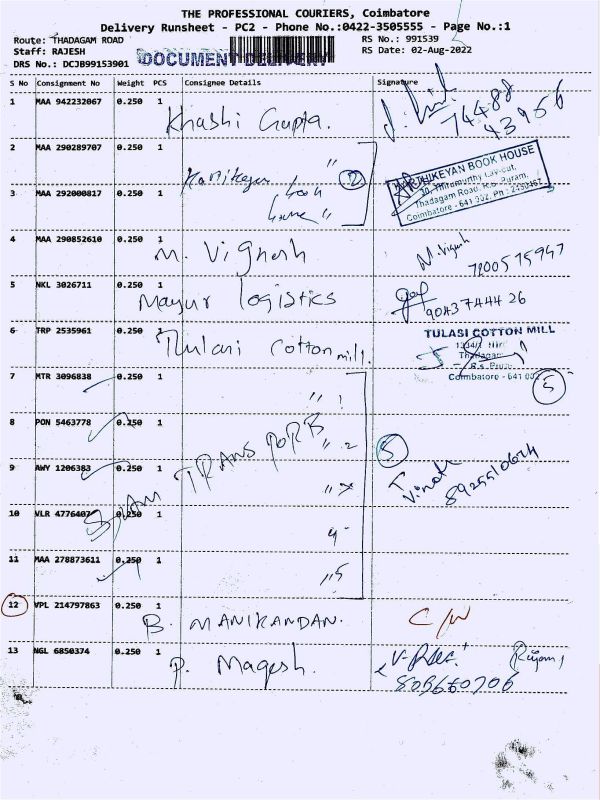 THE PROFESSIONAL COURIERS, Coimbatore
Delivery Runsheet - PC2 - Phone No.:0422-3505555 - Page No.:1
Route: THADAGAM ROAD RS No.: 991539
Staff: RAJESH DOCUMENT DELIVERY RS Date: 02-Aug-2022
DRS No.: DCJB99153901
S No Consignment No Weight PCS Consignee Details Signature
1 MAA 942232067 0.250 1 Khashi Gupta. 74488
43956
2 MAA 290289707 0.250 1 "
Karthikeyan Book 2 KARTHIKEYAN BOOK HOUSE
30, Thirumurthy Lay-out,
3 MAA 292000817 0.250 1 House " Thadagam Road, R.S. Puram,
Coimbatore - 641 002. Ph :
4 MAA 290852610 0.250 1 M. Vignesh M. Vignesh
7200575947
5 NKL 3026711 0.250 1 Mayur logistics
9043744426
6 TRP 2535961 0.250 1 Tulasi cotton mill. TULASI COTTON MILL
Thadagam
R.s. Puram
Coimbatore - 641 002
5
7 MTR 3096838 0.250 1 " 1
8 PON 5463778 0.250 1 " 2
TRANSPORT 5
9 AWY 1206383 0.250 1 "
Vinoth
10 VLR 4776407 0.250 1 4
11 MAA 278873611 0.250 1 " 5
12 VPL 214797863 0.250 1 B. MANIKANDAN. C/N
13 NGL 6850374 0.250 1 P. Magesh.